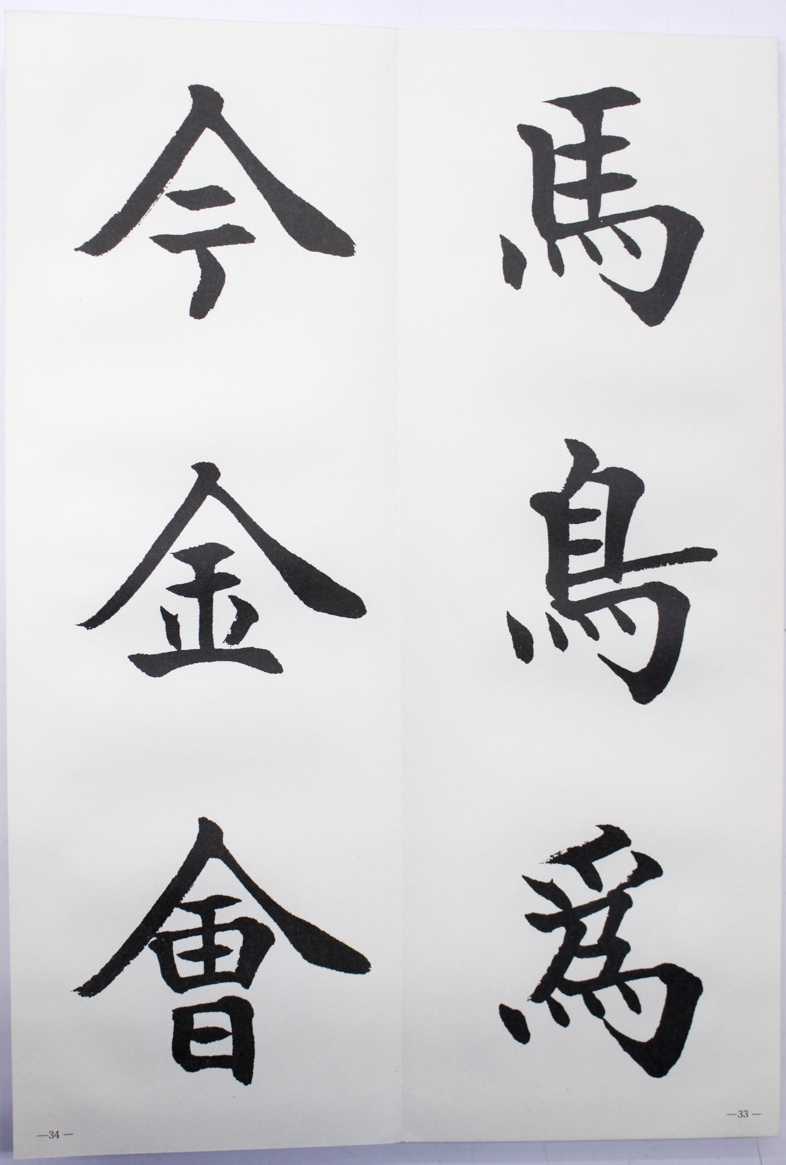 馬
鳥
爲
—33—
今
金
會
—34—